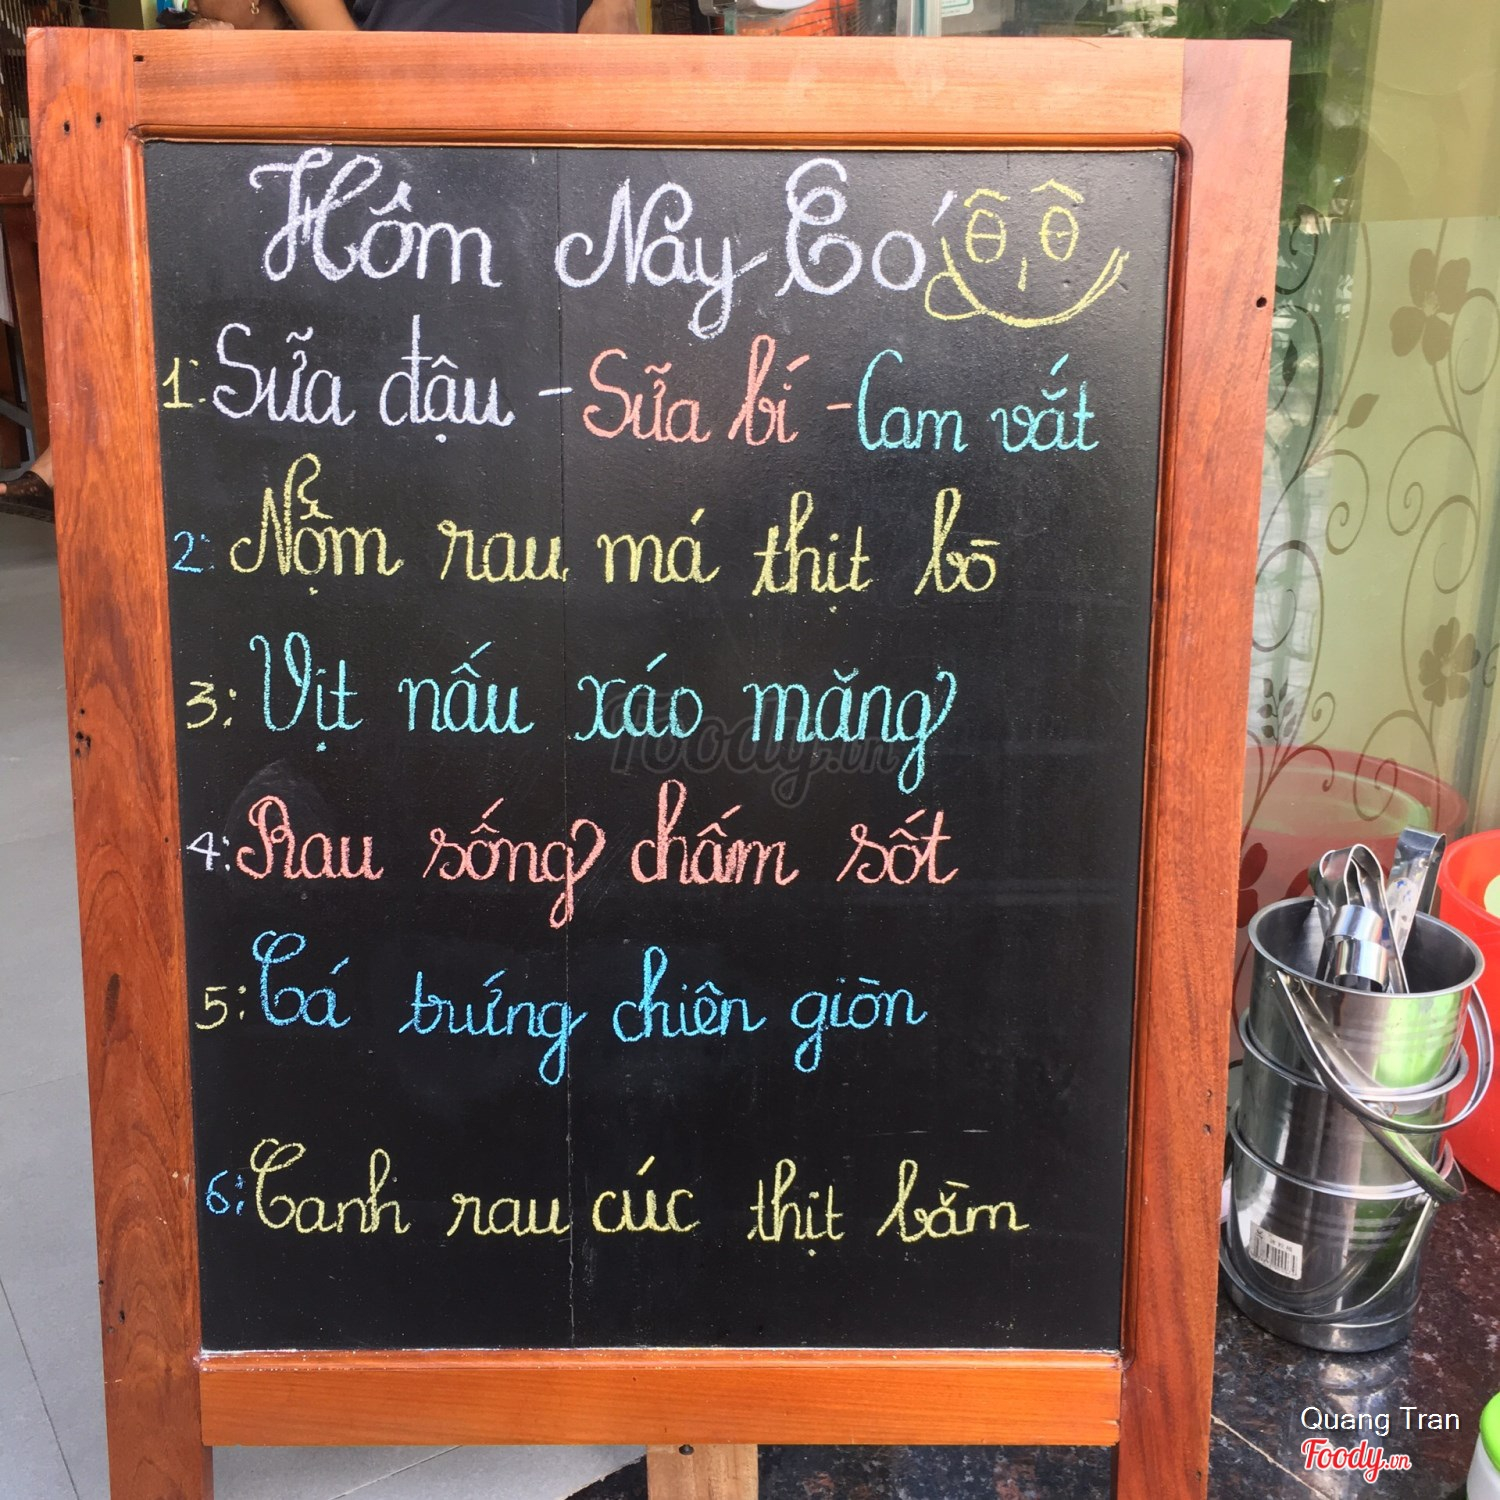 Hôm Nay Có
1: Sữa đậu - Sữa bí - Cam vắt
2: Nộm rau má thịt bò
3: Vịt nấu xáo măng
4: Rau sống chấm sốt
5: Cá trứng chiên giòn
6: Canh rau cúc thịt bằm
Foody.vn
Quang Tran
Foody.vn